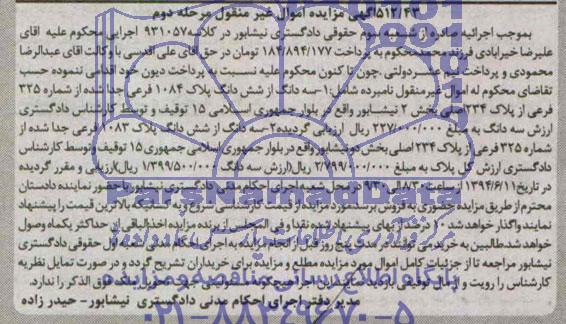 ۵۱۲/۴۳ آگهی مزایده اموال غیر منقول مرحله دوم
بموجب اجرائیه صادره از شعبه سوم حقوقی دادگستری نیشابور در کلاسه ۹۳۱۰۵۷ اجرایی محکوم علیه آقای
علیرضا خیرآبادی فرزند محمد محکوم به پرداخت ۱۸۴/۸۹۴/۱۷۷ تومان در حق آقای علی اقدسی با وکالت آقای عبدالرضا
محمودی و پرداخت نیم عشر دولتی .چون تا کنون محکوم علیه نسبت به پرداخت دیون خود اقدامی ننموده حسب
تقاضای محکوم له اموال غیر منقول نامبرده شامل:۱-سه دانگ از شش دانگ پلاک ۱۰۸۴ فرعی جدا شده از شماره ۳۲۵
فرعی از پلاک ۲۳۴ اصلی بخش ۲ نیشابور واقع در بلوار جمهوری اسلامی ۱۵ توقیف و توسط کارشناس دادگستری
ارزش سه دانگ به مبلغ ۲۲۷/۰۰۰/۰۰۰ ریال ارزیابی گردیده ۲-سه دانگ از شش دانگ پلاک ۱۰۸۳ فرعی جدا شده از
شماره ۳۲۵ فرعی از پلاک ۲۳۴ اصلی بخش دو نیشابور واقع در بلوار جمهوری اسلامی جمهوری ۱۵ توقیف و توسط کارشناس
دادگستری ارزش کل پلاک به مبلغ ۲/۷۹۹/۰۰۰/۰۰۰ ریال(ارزش سه دانگ ۱/۳۹۹/۵۰۰/۰۰۰ ریال)ارزیابی و مقرر گردیده
در تاریخ ۱۳۹۴/۶/۱۱ از ساعت ۸:۳۰ الی ۹:۳۰ در محل شعبه اجرای احکام مدنی دادگستری نیشابور با حضور نماینده دادستان
محترم از طریق مزایده حضوری به فروش برسد مورد مزایده از قیمت کارشناسی شروع و به کسی که بالاترین قیمت را پیشنهاد
نماید واگذار خواهد شد. ۱۰ درصد از بهای پیشنهاد شده نقدا و فی المجلس از برنده مزایده اخذ الباقی حداکثر یکماه وصول
خواهد شد.طالبین به خرید می توانند در مدت پنج روز قبل از انجام مزایده به اجرای احکام مدنی شعبه اول حقوقی دادگستری
نیشابور مراجعه تا از جزئیات کامل اموال مورد مزایده مطلع و مزایده برای خریداران تشریح گردد و در صورت تمایل نظریه
کارشناس را رویت و از مال توقیفی بازدید
مدیر دفتر اجرای احکام مدنی دادگستری نیشابور- حیدر زاده
ParsNamadData
پایگاه اطلاع رسانی مناقصه و مزایده
۰۲۱-۸۸۳۴۹۶۷۰-۵